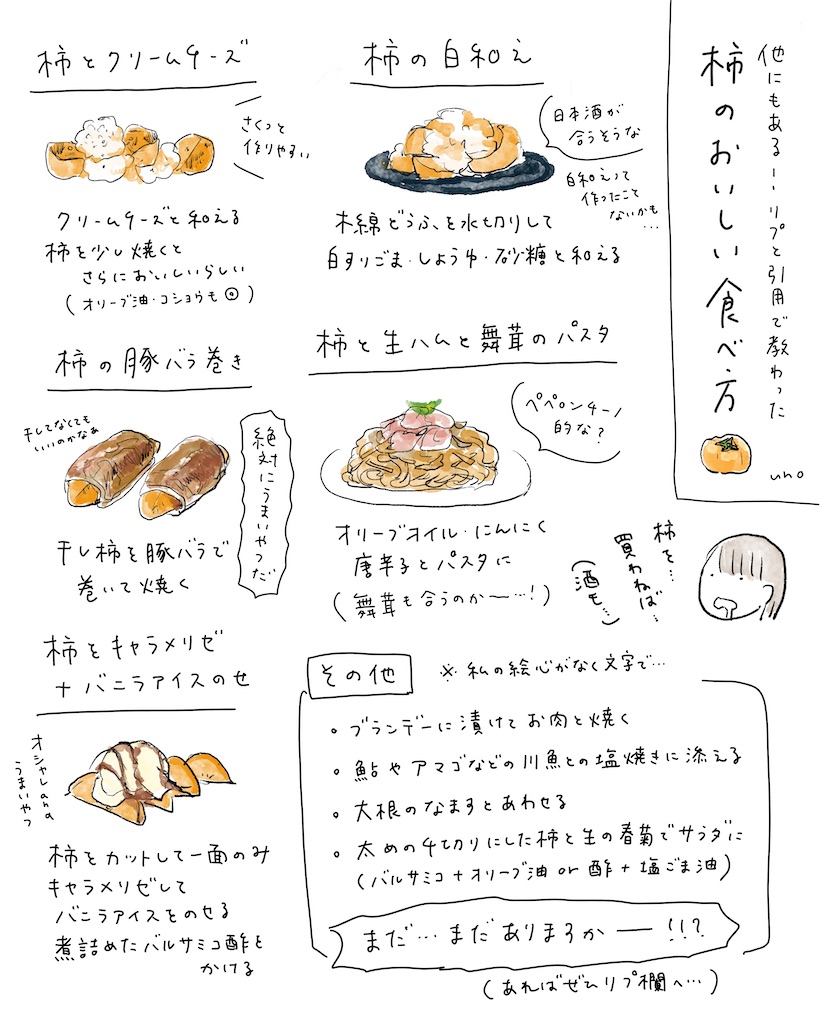 他にもある…リプと引用で教わった
柿のおいしい食べ方
uno
柿の白和え
日本酒が
合うそうな
白和えって
作ったこと
ないかも
...
木綿どうふを水切りして
白すりごま・しょうゆ・砂糖と和える
柿とクリームチーズ
さくっと
作りやすい
クリームチーズと和える
柿を少し焼くと
さらにおいしいらしい
(オリーブ油・コショウも◎)
柿と生ハムと舞茸のパスタ
ペペロンチーノ
的な?
オリーブオイル・にんにく
唐辛子とパスタに
(舞茸も合うのかー…!)
柿の豚バラ巻き
干してなくても
いいのかなぁ
絶対にうまいやつだ
干し柿を豚バラで
巻いて焼く
柿を…
買わねば…
(酒も…)
柿をキャラメリゼ
+バニラアイスのせ
オシャレana
うまいやつ
柿をカットして一面のみ
キャラメリゼして
バニラアイスをのせる
煮詰めたバルサミコ酢を
かける
その他
※私の絵心がなく文字で…
。ブランデーに漬けてお肉と焼く
。鮎やアマゴなどの川魚との塩焼きに添える
。大根のなますとあわせる
。太めの千切りにした柿と生の春菊でサラダに
(バルサミコ+オリーブ油 or 酢+塩ごま油)
まだ…まだありますかー!!?
(あればぜひリプ欄へ…)